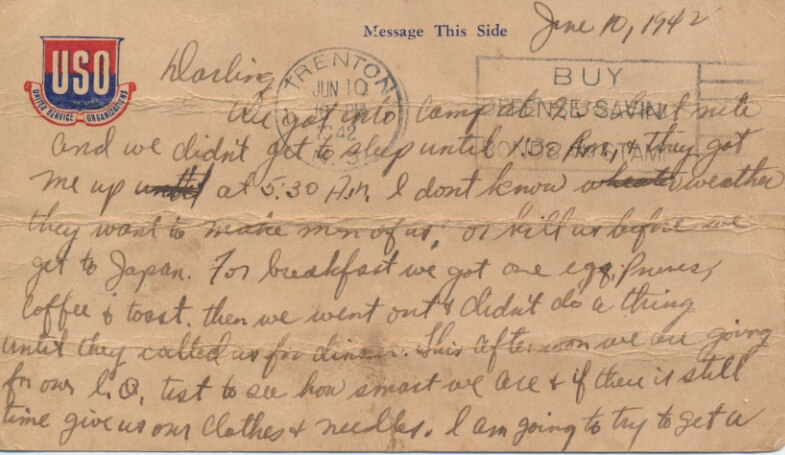 Message This Side
June 10, 1942
USO
UNITED SERVICE ORGANIZATIONS
TRENTON
JUN 10
PM
1942
BUY
DEFENSE SAVINGS
BONDS AND STAMPS
Darling
We got into camp at last nite
and we didn't get to sleep until 1:30 A.m. & they got
me up until at 5:30 A.m. I dont know wheather weather
they want to make men of us, or kill us before we
get to Japan. For breakfast we got one egg, Prunes,
Coffee & toast. then we went out & didn't do a thing
until they called us for dinner. This afternoon we are going
for our I.Q. test to see how smart we are & if there is still
time give us our clothes & needles. I am going to try to get a